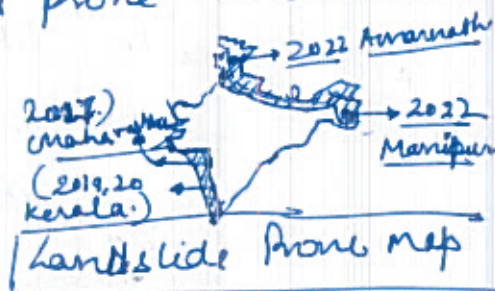 prone
2022 Amarnath
2017.)
(Maharashtra
2022
Manipur
(2019,20
Kerala.)
Landslide Prone map